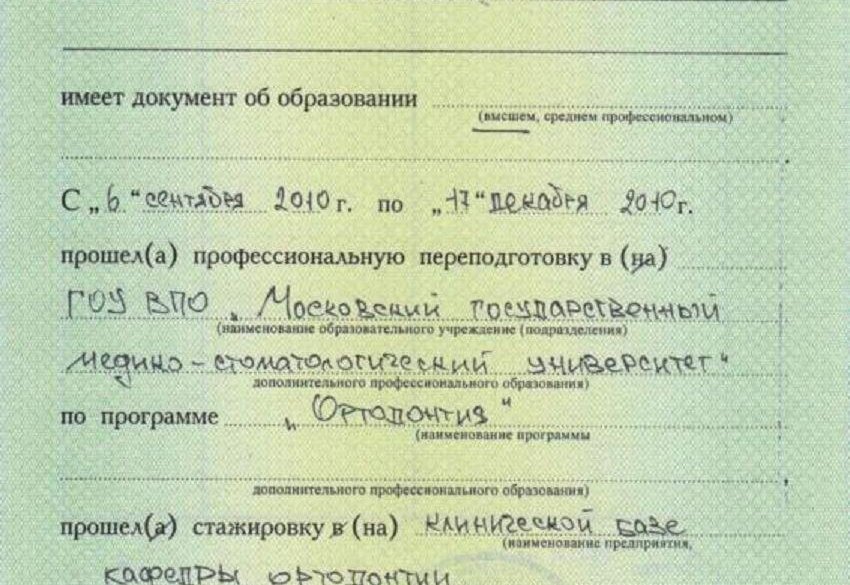 имеет документ об образовании
(высшем, среднем профессиональном)
С „6“ сентября 2010 г. по „17“ декабря 2010 г.
прошел(а) профессиональную переподготовку в (на)
ГОУ ВПО „Московский государственный
(наименование образовательного учреждение (подразделения)
медико-стоматологический университет“
дополнительного профессионального образования)
по программе „Ортодонтия“
(наименование программы
дополнительного профессионального образования)
прошел(а) стажировку в (на) клинической базе
(наименование предприятия,
кафедры ортодонтии